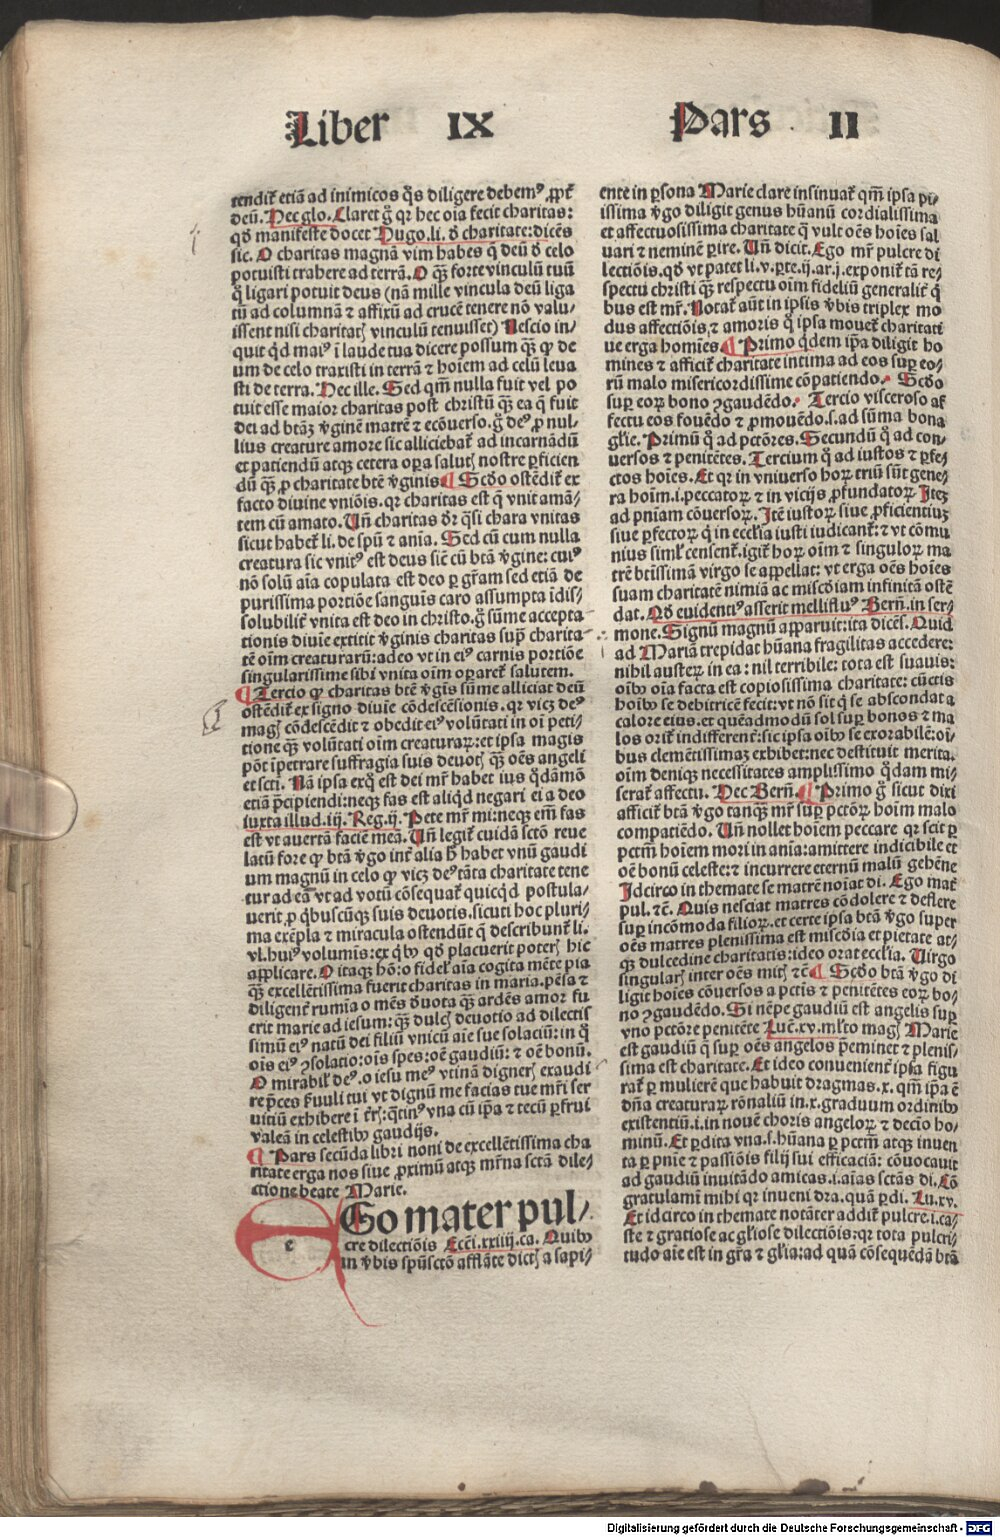 Liber IX Pars II
tendit̃ etiã ad inimicos q̃s diligere debemꝰ ꝓpt̃
deũ. Hec glo. Claret g̃ qꝛ hec oĩa fecit charitas:
qđ manifeste docet Hugo. li. đ charitate: dicẽs
sic. O charitas magnã vim habes q̃ deũ đ celo
potuisti trahere ad terrã. O q̃ꝫ forte vinculũ tuũ
q̃ ligari potuit deus (nã mille vincula deũ liga
tũ ad columnã ⁊ affixũ ad crucẽ tenere nõ valu⸗
issent nisi charitatꝭ vinculũ tenuisset) Nescio in⸗
quit qͥd maiꝰ ĩ laude tua dicere possum q̃ꝫ ꝙ de
um de celo traxisti in terrã ⁊ hoĩem ad celũ leua
sti de terra. Hec ille. Sed qm̃ nulla fuit vel po
tuit esse maior charitas post christũ q̃ꝫ ea q̃ fuit
dei ad btãꝫ ṽginẽ matrẽ ⁊ ecõuerso. g̃ deꝰ ꝓ nul⸗
lius creature amore sic alliciebat̃ ad incarnãdũ
et patiendũ atqꝫ cetera oꝑa salutꝭ nostre ꝑficien
dũ q̃ꝫ ꝓ charitate btẽ ṽginis ¶ Scđo ostẽdit̃ ex
facto diuine vniõis. qꝛ charitas est q̃ vnit amã⸗
tem cũ amato. Uñ charitas đr q̃si chara vnitas
sicut habet̃ li. de spũ ⁊ aĩa. Sed cũ cum nulla
creatura sic vnitꝰ est deus siẽ cũ btã ṽgine: cuiꝰ
nõ solũ aĩa copulata est deo ꝑ gr̃am sed etiã de
purissima portiõe sanguĩs caro assumpta ĩdis⸗
solubilit̃ vnita est deo in christo. g̃ sũme accepta⸗
tionis diuĩe extitit ṽginis charitas suꝑ charita⸗
tẽ oĩm creaturarũ: adeo vt in eiꝰ carnis portiõe
singularissime sibi vnita oĩm oꝑaret̃ salutem.
¶ Tercio ꝙ charitas btẽ ṽgĩs sũme alliciat deũ
ostẽdit̃ ex signo diuĩe cõdescẽsionis. qꝛ vicꝫ deꝰ
magꝭ cõdescẽdit ⁊ obedit eiꝰ volũtati in oĩ peti⸗
tione q̃ꝫ volũtati oĩm creaturaꝝ: et ipsa magis
põt ĩpetrare suffragia suis deuotꝭ q̃ꝫ oẽs angeli
et scti. Nã ipsa exq̃ est dei mr̃ habet ius q̃dãmõ
etiã p̃cipiendi: neqꝫ fas est aliqͥd negari ei a deo
iuxta illud. iij. Reg. ij. Pete mr̃ mi: neqꝫ em̃ fas
est vt auertã faciẽ meã. Uñ legit̃ cuidã sctõ reue
latũ fore ꝙ btã ṽgo int̃ alia h̃ habet vnũ gaudi
um magnũ in celo ꝙ vicꝫ deꝰ tãta charitate tene
tur ad eã vt ad votũ cõsequat̃ quicqͥd postula⸗
uerit ꝓ qͥbuscũqꝫ suis deuotis. sicuti hoc pluri⸗
ma exẽpla ⁊ miracula ostendũt q̃ describunt̃ li.
vl. huiꝰ volumis: ex qͥbꝰ qđ placuerit poterꝭ hic
applicare. O itaqꝫ hõ: o fidel̃ aĩa cogita mẽte pia
q̃ꝫ excellẽtissima fuerit charitas in maria. pẽsa ⁊
diligent̃ rumĩa o mẽs đuota q̃ꝫ ardẽs amor fu
erit marie ad iesum: q̃ꝫ dulcꝭ deuotio ad dilectis
simũ eiꝰ natũ dei filiũ vnicũ aĩe sue solaciũ: in q̃
oĩs eiꝰ ꝯsolatio: oĩs spes: oẽ gaudiũ: ⁊ oẽ bonũ.
O mirabil̃ deꝰ. o iesu meꝰ vtinã dignerꝭ exaudi
re p̃ces ẛuuli tui vt dignũ me facias tue mr̃i ser
uitiũ exhibere ĩ tr̃ꝭ: q̃tinꝰ vna cũ ip̃a ⁊ tecũ ꝑfrui
valeã in celestibꝰ gaudijs.
¶ Pars secũda libri noni de excellẽtissima cha
ritate erga nos siue ꝓximũ atqꝫ mr̃na sctã dile⸗
ctione beate Marie.
EGo mater pul⸗
cre dilectiõis Ecc̃i. xxiiij. ca. Quibꝰ
in ṽbis spũsctõ afflãte dictꝭ a sapi⸗
ente in ꝑsona Marie clare insinuat̃ qm̃ ipsa pi⸗
issima ṽgo diligit genus hũanũ cordialissima
et affectuosissima charitate q̃ vult oẽs hoĩes sal
uari ⁊ neminẽ ꝑire. Uñ dicit. Ego mr̃ pulcre di
lectiõis. qđ vt patet li. v. ꝑte. ij. ar. j. exponit̃ tã re⸗
spectu christi q̃ꝫ respectu oĩm fideliũ generalit̃ q̃
bus est mr̃. Notat̃ aũt in ipsis ṽbis triplex mo
dus affectiõis, ⁊ amoris q̃ ipsa mouet̃ charitati
ue erga homĩes ¶ Primo qͥdem ip̃a diligit ho
mines ⁊ afficit̃ charitate intima ad eos suꝑ eo⸗
rũ malo misericordissime cõpatiendo. Scđo
suꝑ eoꝝ bono ꝯgaudẽdo. Tercio visceroso af
fectu eos fouẽdo ⁊ ꝓmouẽdo. s. ad sũma bona
gl̃ie. Primũ q̃ ad pctõres. Secundũ q̃ ad con⸗
uersos ⁊ penitẽtes. Tercium q̃ ad iustos ⁊ ꝑfe⸗
ctos hoĩes. Et qꝛ in vniuerso hoꝝ triũ sũt gene⸗
ra hoĩm. i. peccatoꝝ ⁊ in vicijs ꝓfundatoꝝ Iteꝫ
ad pniam cõuersoꝝ. Itẽ iustoꝝ siue ꝓficientiuꝫ
siue ꝑfectoꝝ q̃ in eccl̃ia iusti iudicant̃: ⁊ vt cõmu
nius simĩl̃ censent̃. igit̃ hoꝝ oĩm ⁊ singuloꝝ ma
trẽ btĩssimã virgo se appellat: vt erga oẽs hoĩes
suam charitatẽ nimiã ac miscđiam infinitã ostẽ
dat. Qđ euidentiꝰ asserit mellifluꝰ Berñ. in ser⸗
mone. Signũ magnũ apparuit: ita dicẽs. Quid
ad Mariã trepidat hũana fragilitas accedere:
nihil austeꝝ in ea: nil terribile: tota est suauis:
oĩbꝰ oĩa facta est copiosissima charitate: cũctis
hoĩbꝰ se debitricẽ fecit: vt nõ sit q̃ se abscondat a
calore eius. et quẽadmodũ sol suꝑ bonos ⁊ ma
los orit̃ indifferent̃: sic ipsa oĩbꝰ se exorabilẽ: oĩ⸗
bus clemẽtissimaꝫ exhibet: nec destituit merita.
oĩm deniqꝫ necessitates amplissimo q̃dam mi⸗
serat̃ affectu. Hec Berñ. ¶ Primo g̃ sicut dixi
afficit̃ btã ṽgo tanqꝫ mr̃ suꝑ pctõꝝ hoĩm malo
compatiẽdo. Uñ nollet hoĩem peccare qꝛ scit ꝑ
pctm̃ hoĩem mori in anĩa: amittere indicibile et
oẽ bonũ celeste: ⁊ incurrere eternũ malũ gehẽne
Idcirco in themate se matrẽ noĩat di. Ego mat̃
pul. ⁊c̃. Quis nesciat matres cõdolere ⁊ deflere
suꝑ incõmoda filioꝝ. et certe ipsa btã ṽgo super
oẽs matres plenissima est miscđia et pietate at⸗
qꝫ dulcedine charitatis: ideo orat eccl̃ia. Uirgo
singularꝭ inter oẽs mitꝭ ⁊c̃ ¶ Scđo btã ṽgo di
ligit hoĩes cõuersos a pctĩs ⁊ penitẽtes eoꝝ bo⸗
no ꝯgaudẽdo. Si nẽpe gaudiũ est angelis suꝑ
vno pctõre penitẽte Luc̃. xv. ml̃to magꝭ Marie
est gaudiũ q̃ suꝑ oẽs angelos p̃eminet ⁊ plenis⸗
sima est charitate. Et ideo conuenient̃ ipsa figu
rat̃ ꝑ mulierẽ que habuit dragmas. x. qm̃ ip̃a ẽ
dña creaturaꝝ rõnaliũ in. x. graduum ordinibꝰ
existentiũ. i. in nouẽ choris angeloꝝ ⁊ decĩo ho⸗
minũ. Et ꝑdita vna. s. hũana ꝑ pctm̃ atqꝫ inuen
ta ꝑ pnĩe ⁊ passiõis filij sui efficaciã: cõuocauit
ad gaudiũ inuitãdo amicas. i. aĩas sctãs di. Cõ
gratulamĩ mihi qꝛ inueni dra. quã ꝑdi. Lu. xv.
Et idcirco in themate notãter addit̃ pulcre. i. ca⸗
ste ⁊ gratiose ac gl̃iose dilectiõis: qꝛ tota pulcri⸗
tudo aĩe est in gr̃a ⁊ gl̃ia: ad quã cõsequẽdã btã
Digitalisierung gefördert durch die Deutsche Forschungsgemeinschaft - DFG